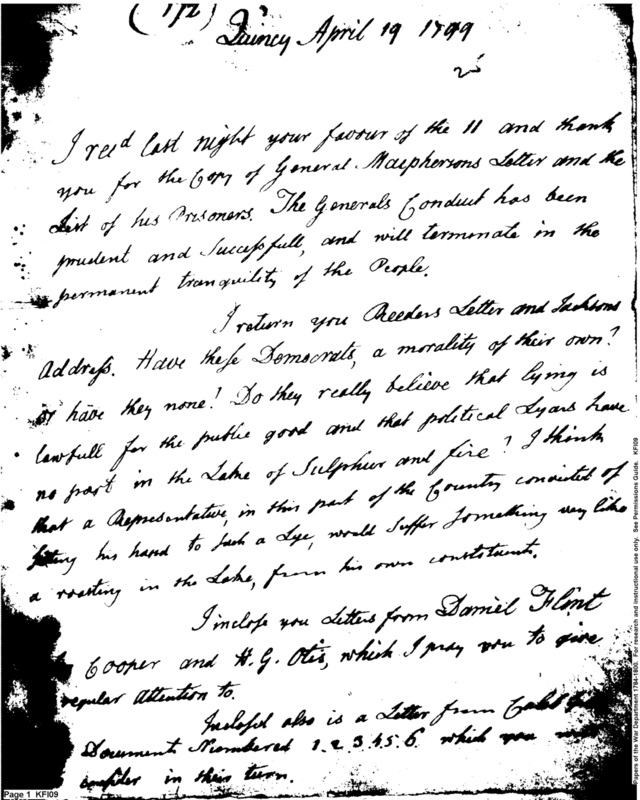 (1/2)
Quincy April 19 1799
I recd last night your favour of the 11 and thank
you for the Copy of General Macphersons Letter and the
List of his Prisoners. The Generals Conduct has been
prudent and Successfull, and will terminate in the
permanent tranquility of the People.
I return you Reeders Letter and Jacksons
Address. Have these Democrats, a morality of their own?
or have they none! Do they really believe that lying is
lawfull for the public good and that political Lyars have
no part in the Lake of Sulphur and fire? I think
that a Representative, in this part of the Country convicted of
setting his hand to such a Lye, would Suffer Something very like
a roasting in the Lake, from his own constituents.
I inclose you Letters from Daniel Flint
Cooper and H. G. Otis, which I pray you to give
regular Attention to.
Inclosed also is a Letter from Caleb
Document Numbered 1. 2. 3. 4. 5. 6. which you
consider in their turn.
Page 1 KFI09
Papers of the War Department 1784-1800. For research and instructional use only. See Permissions Guide. KFI09